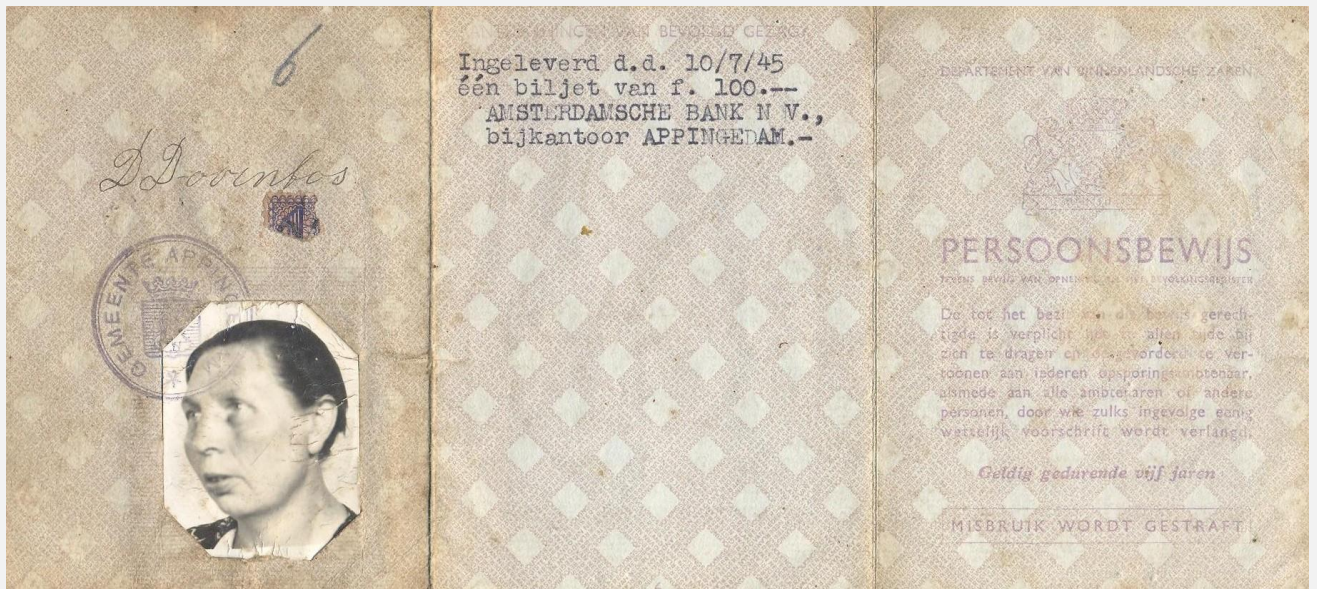 6
D Dovenbos
GEMEENTE APPING
AANTEEKENINGEN VAN BEVOEGD GEZAG
Ingeleverd d.d. 10/7/45
één biljet van f. 100.--
AMSTERDAMSCHE BANK N V.,
bijkantoor APPINGEDAM.-
DEPARTEMENT VAN BINNENLANDSCHE ZAKEN
PERSOONSBEWIJS
TEVENS BEWIJS VAN OPNEMING IN HET BEVOLKINGSREGISTER
De tot het bezit van dit bewijs gerech-
tigde is verplicht het te allen tijde bij
zich te dragen en desgevorderd te ver-
toonen aan iederen opsporingsambtenaar,
alsmede aan alle ambtenaren of andere
personen, door wie zulks ingevolge eenig
wettelijk voorschrift wordt verlangd.
Geldig gedurende vijf jaren
MISBRUIK WORDT GESTRAFT